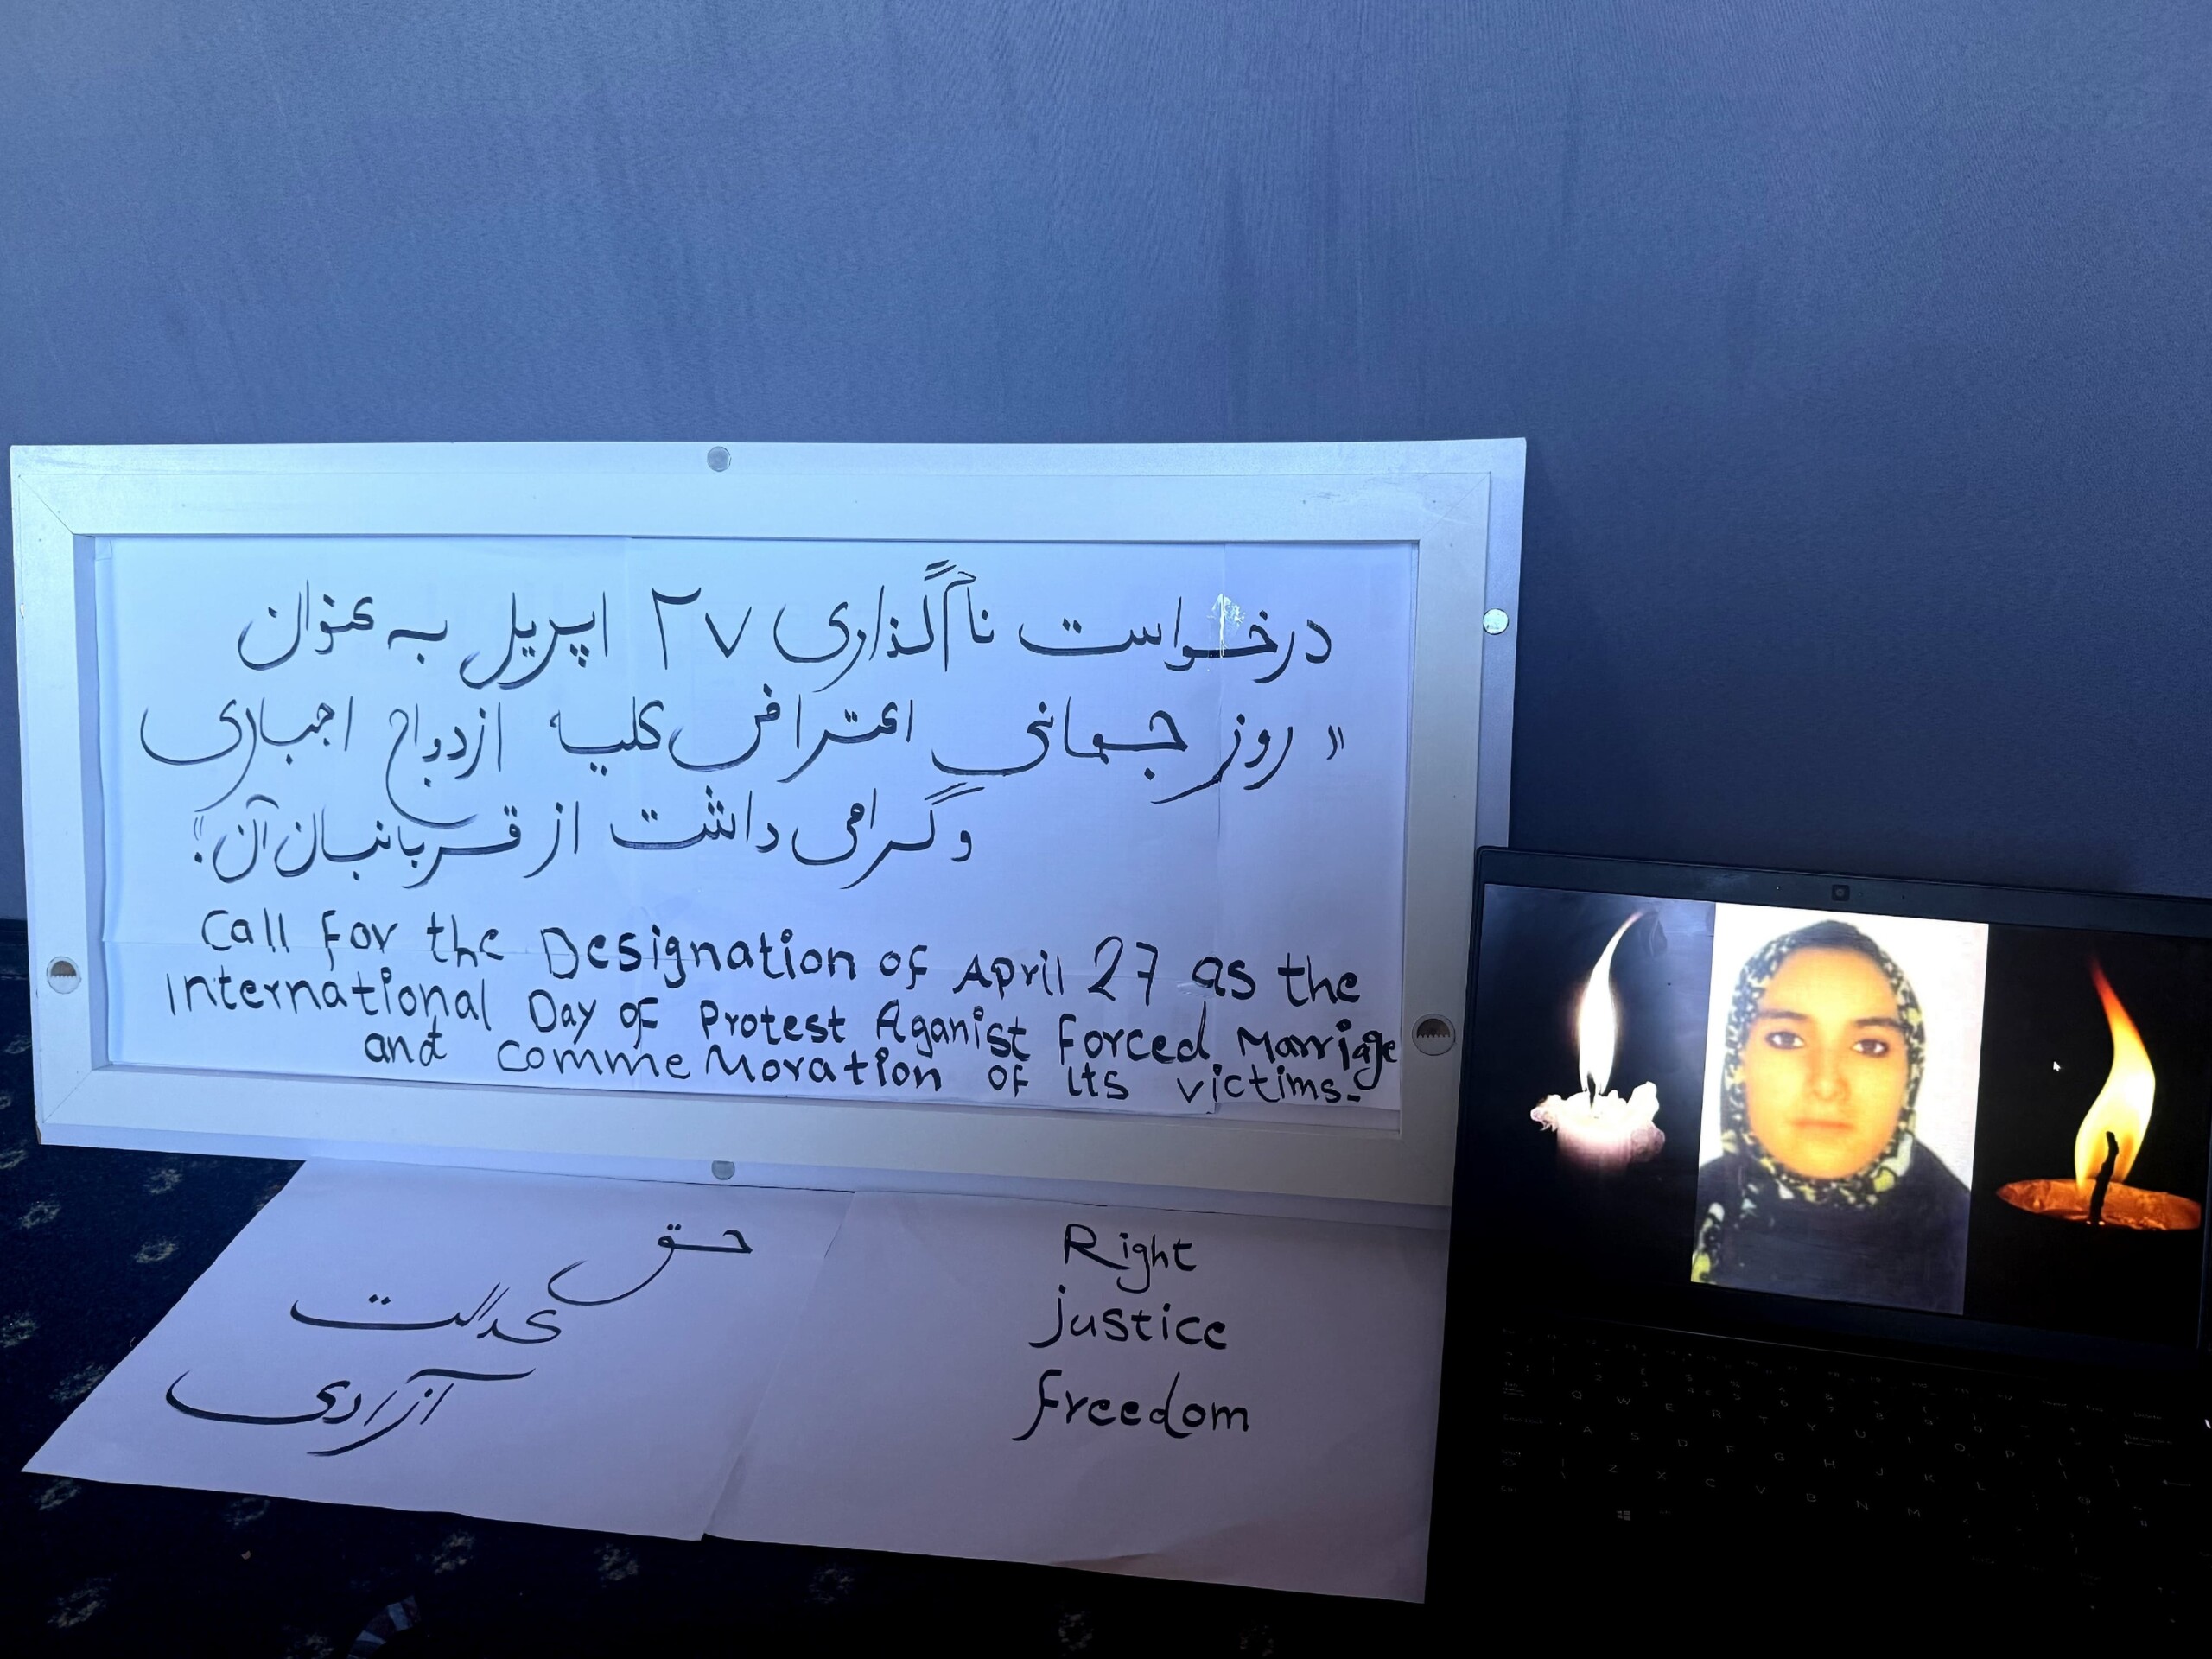 درخواست نامگذاری ۲۷ اپریل به عنوان
«روز جهانی اعتراض علیه ازدواج اجباری
و گرامی داشت از قربانیان آن»!
Call for the Designation of April 27 as the
International Day of Protest Aganist Forced Marriage
and CommeMoration of Its victims.
حق
عدالت
آزادی
Right
justice
freedom